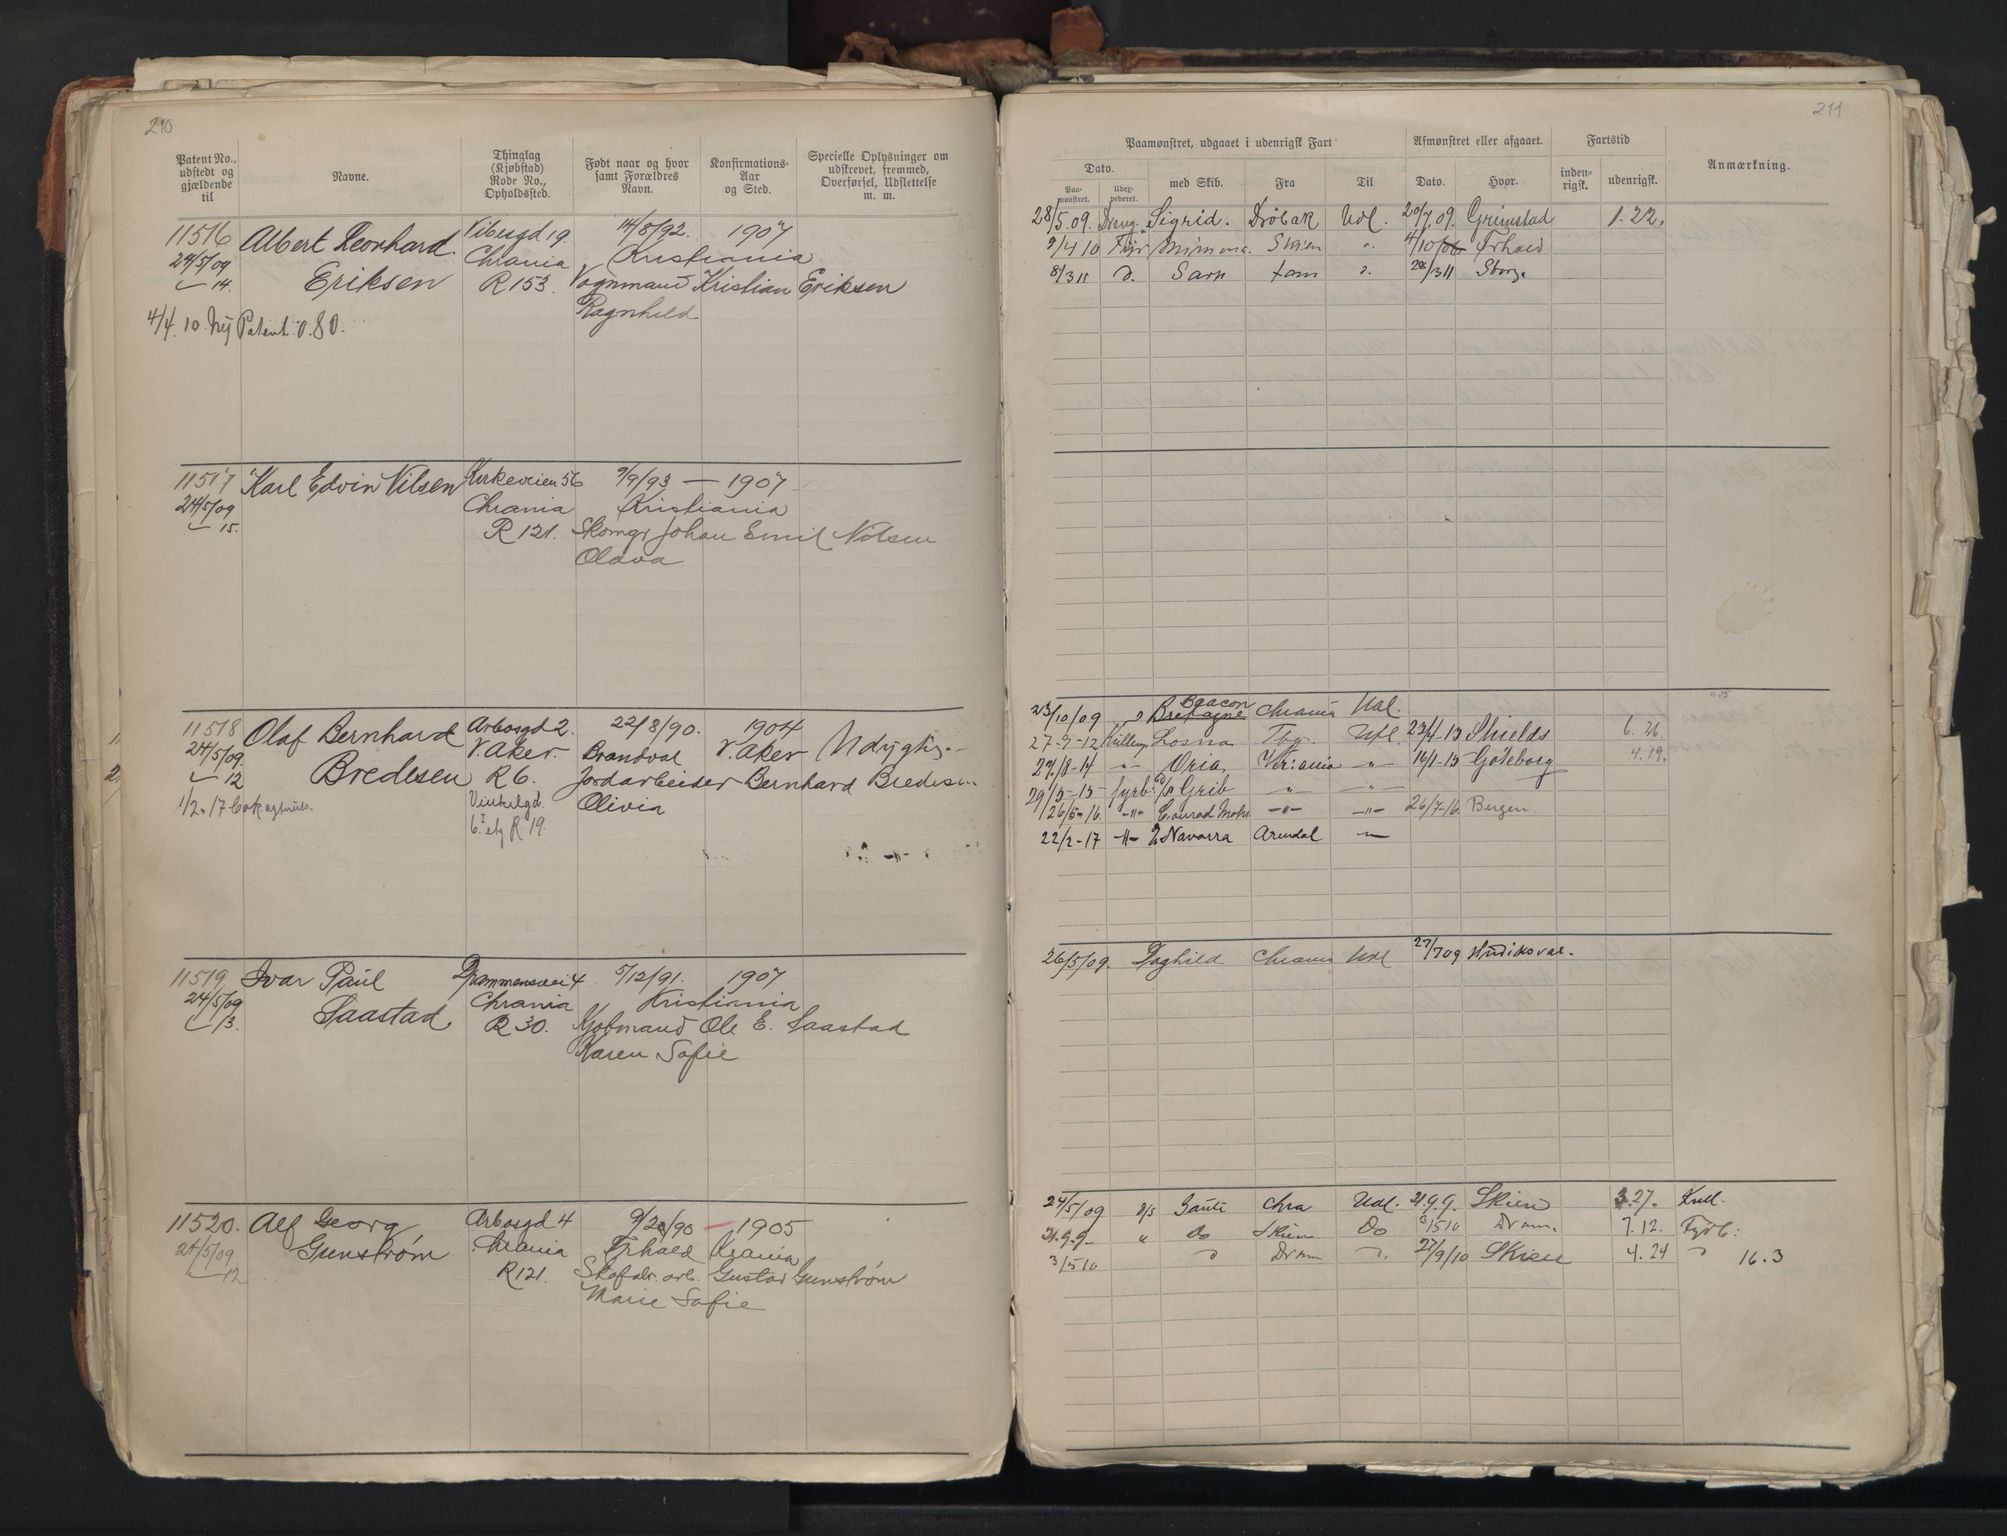 210
Patent No., udstedt og gjældende til
Navne.
Thinglag (Kjøbstad) Rode No., Opholdssted.
Født naar og hvor samt Forældres Navn.
Konfirmations-Aar og Sted.
Specielle Oplysninger om udskrevet, fremmed, Overførsel, Udslettelse m. m.
11516 Albert Leonhard Vibesgd 19. 14/8/92. 1907
24/5/09 Eriksen Chrania Kristiania
14. R 153 Vognmand Kristian Eriksen
Ragnhild
4/4. 10. Nyj Patent. 0.80.
11517 Karl Edvin Nilsen Kirkeveien 56 9/9/93 — 1907
24/5/09 Chrania Kristiania
15. R 121. Skomgr Johan Emil Nilsen
Olava
11518 Olaf Bernhard Arbosgd 2. 22/8/90. 1904
24/5/09. Bredesen V. Aker. Brandval V. Aker Udygtig.
12 R 6. Jordarbeider Bernhard Bredesen
1/2-17 Olivia
6. etg R 19.
11519 Ivar Paul Drammensvei 4 5/12/91. 1907
24/5/09 Saastad Chrania Kristiania
13. R 30. Kjøbmand Ole E. Saastad
Karen Sofie
11520. Alf Georg Arbosgd 4 1905
24/5/09 Gunstrøm Chrania Tjhald Krania
12 R 121. Gustav Gunstrøm
Marie Sofie
211
Paamønstret, udgaaet i udenrigsk Fart
Afmønstret eller afgaaet.
Fartstid
Anmærkning.
Dato.
Paa-mønstret.
Udex-pederet.
med Skib.
Fra
Til
Dato.
Hvor.
inden-rigsk.
udenrigsk.
28/5.09. Dreng. Sigrid. Drøbak Udl. 20/7.09. Grimstad 1.22.
9/4 10 Mimona. Skien " 4/10 Frhald
8/3 11 D. Sarp D. 28/3 11 Sborg.
23/10/09 Beacon Bretagne Chrania Udl.
27-9-12 Losna Tbg. Udl. 23/4-13 Shields 6.26.
27/8-14 -"- Oria Kr:ania -"- 16/1-15 Göteborg 4.19.
29/5-15- fyrb. D/S Grib -"- -"-
26/5-16. -"- Conrad Mohr -"- -"- 26/7-16. Bergen
22/2-17 -"- Navarra Arendal -"-
26/5/09. Daghild Chrania Udl 27/7 09 Hudiksval.
24/5/09 D/S Gaute Chra Udl. 21.9.9. Skien 3.27. Kull.
21.9.9- " Do Skien Do 3/5 10 Dram. 7.12. Fyrb:
3/5 10 D Dram D. 27/9/10 Skien 4.24 " 16.3